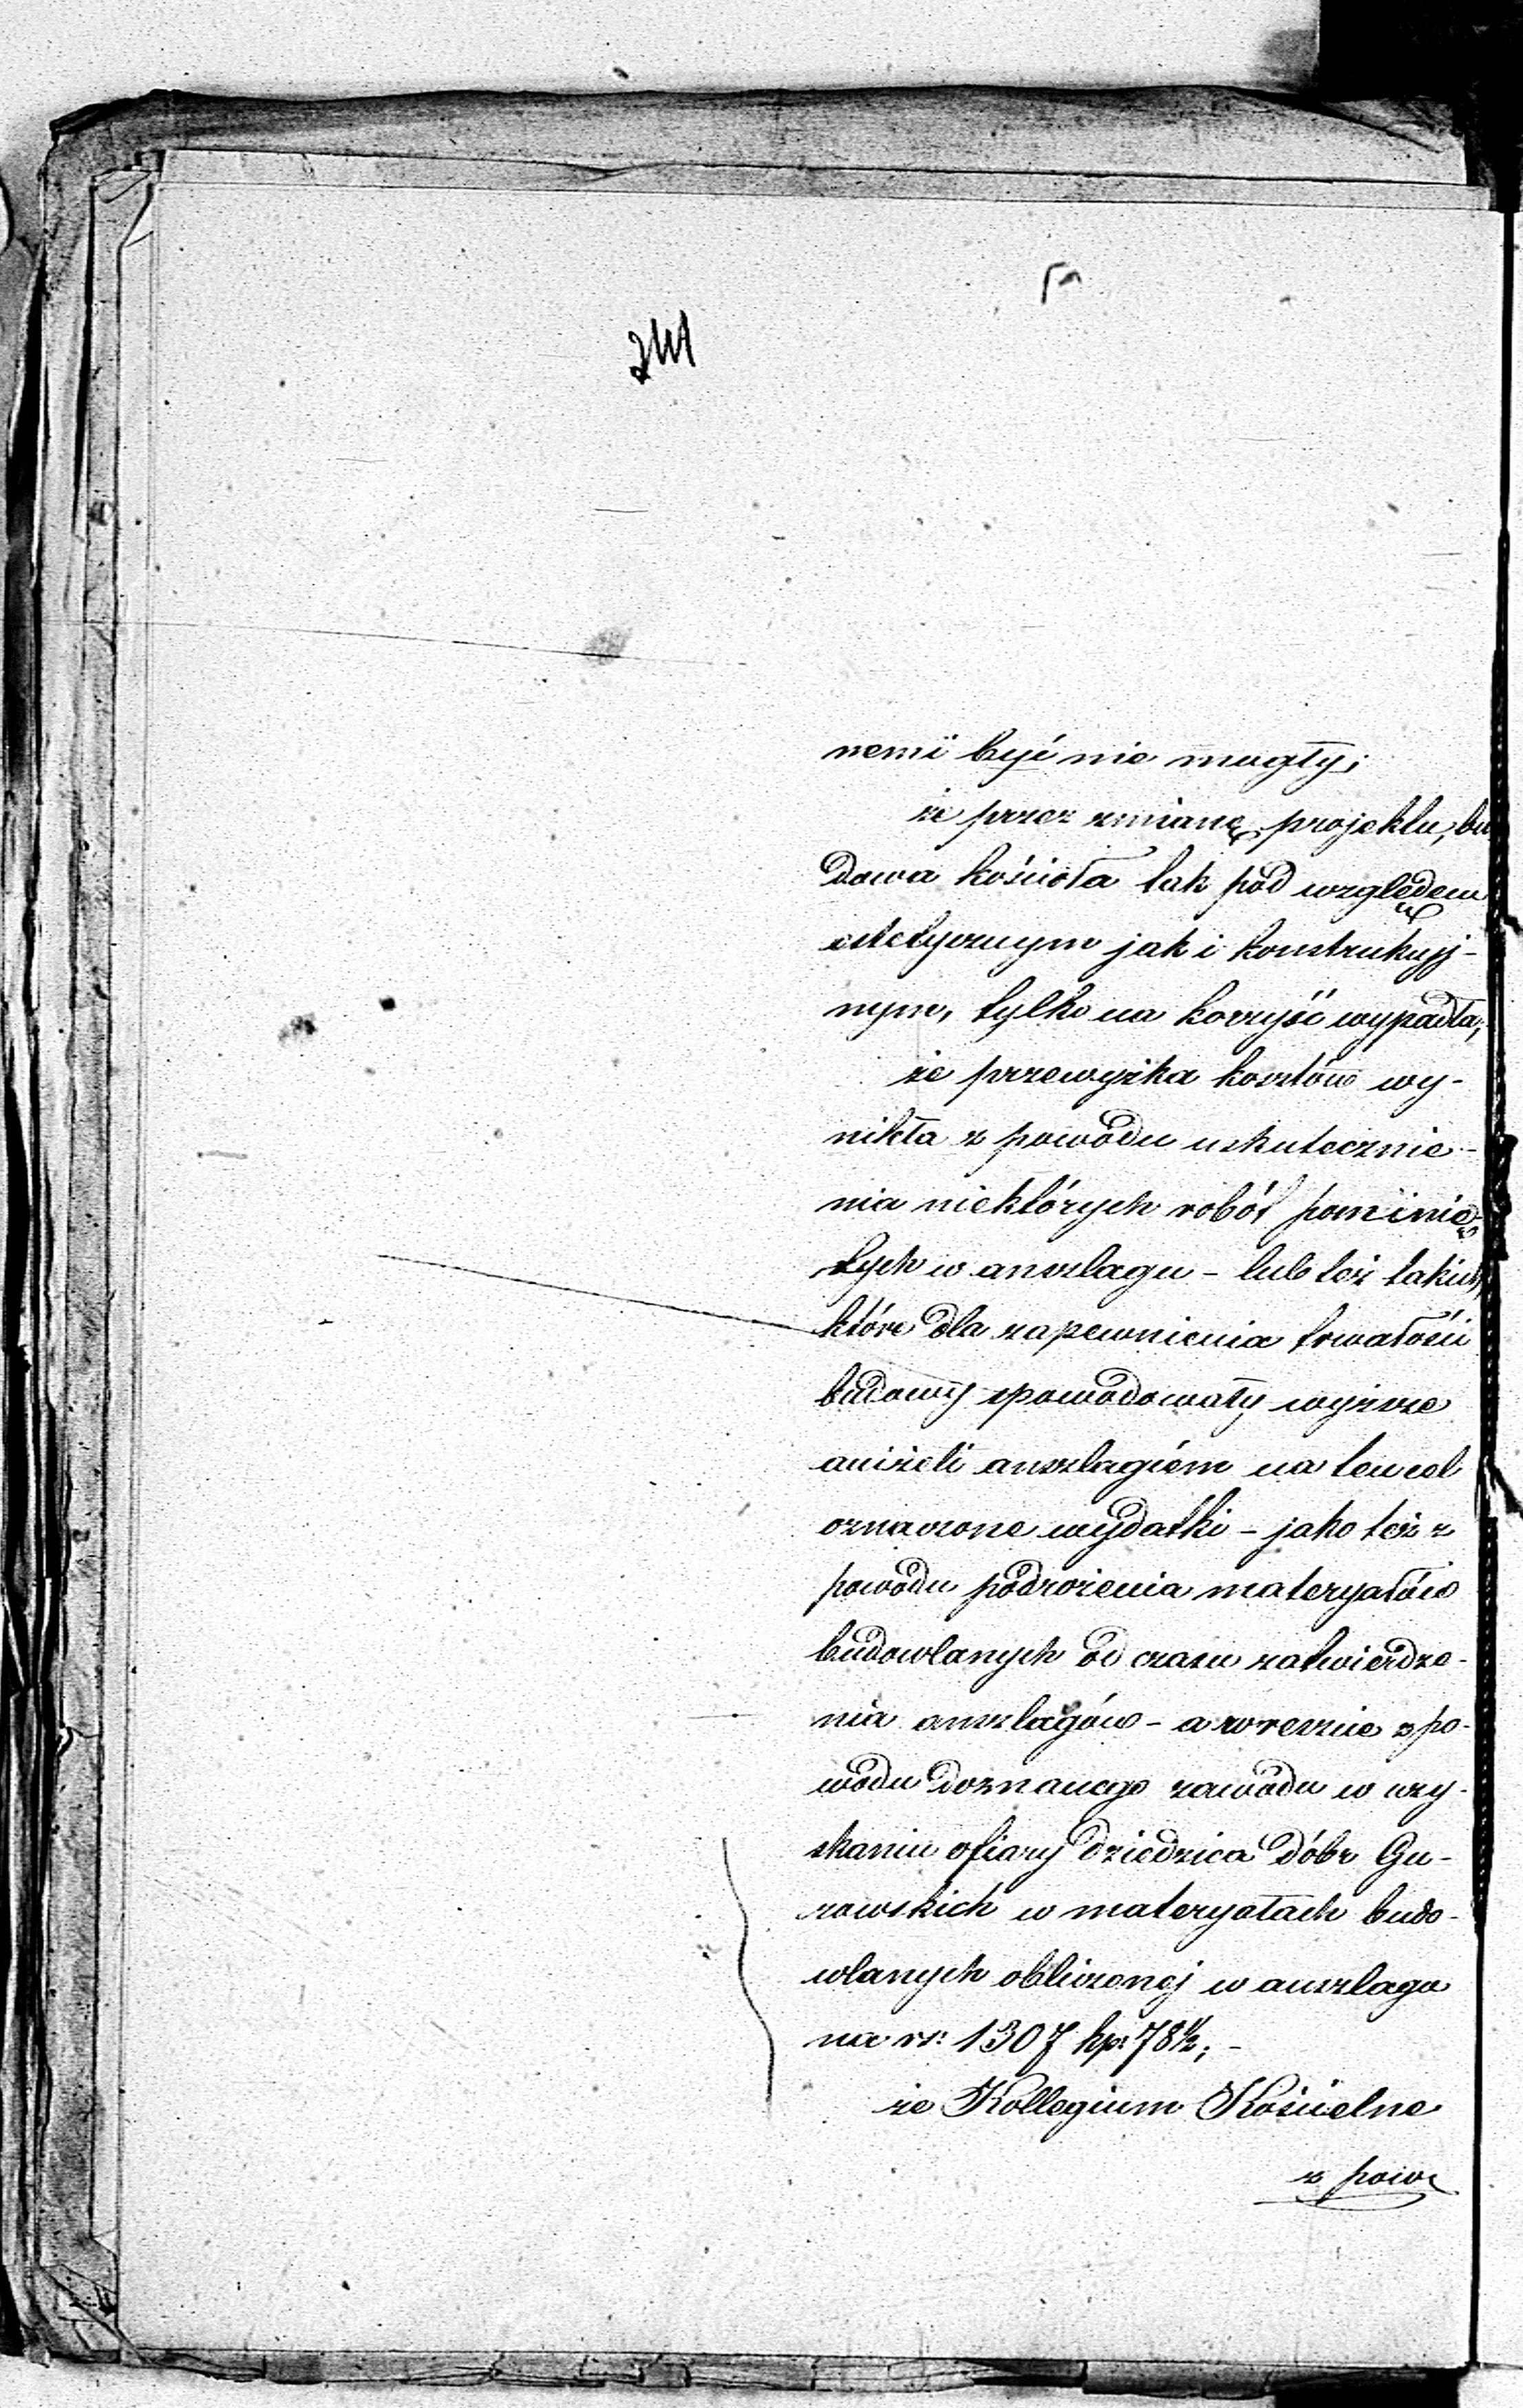 241
nemi być nie mogły;
że przez zmianę projektu, bu
dowa kościoła tak pod względem
estetycznym jak i konstrukcyj-
nym, tylko na korzyść wypadła;
że przewyżka kosztów wy-
nikła z powodu uskutecznie-
nia niektórych robót pominię-
tych w anszlagu - lub też takich,
które dla zapewnienia trwałości
budowy spowodowały wyższe
aniżeli anszlagiém na ten cel
oznaczone wydatki - jako też z
powodu podrożenia materyałów
budowlanych od czasu zatwierdze-
nia anszlagów - a wreszcie z po-
wodu doznanego zawodu w uzy-
skaniu ofiary dziedzica dóbr Gu-
zowskich w materyałach budo-
wlanych obliczonej w anszlagu
na rs: 1307 kp: 78½; -
że Kollegium Kościelne
z powo